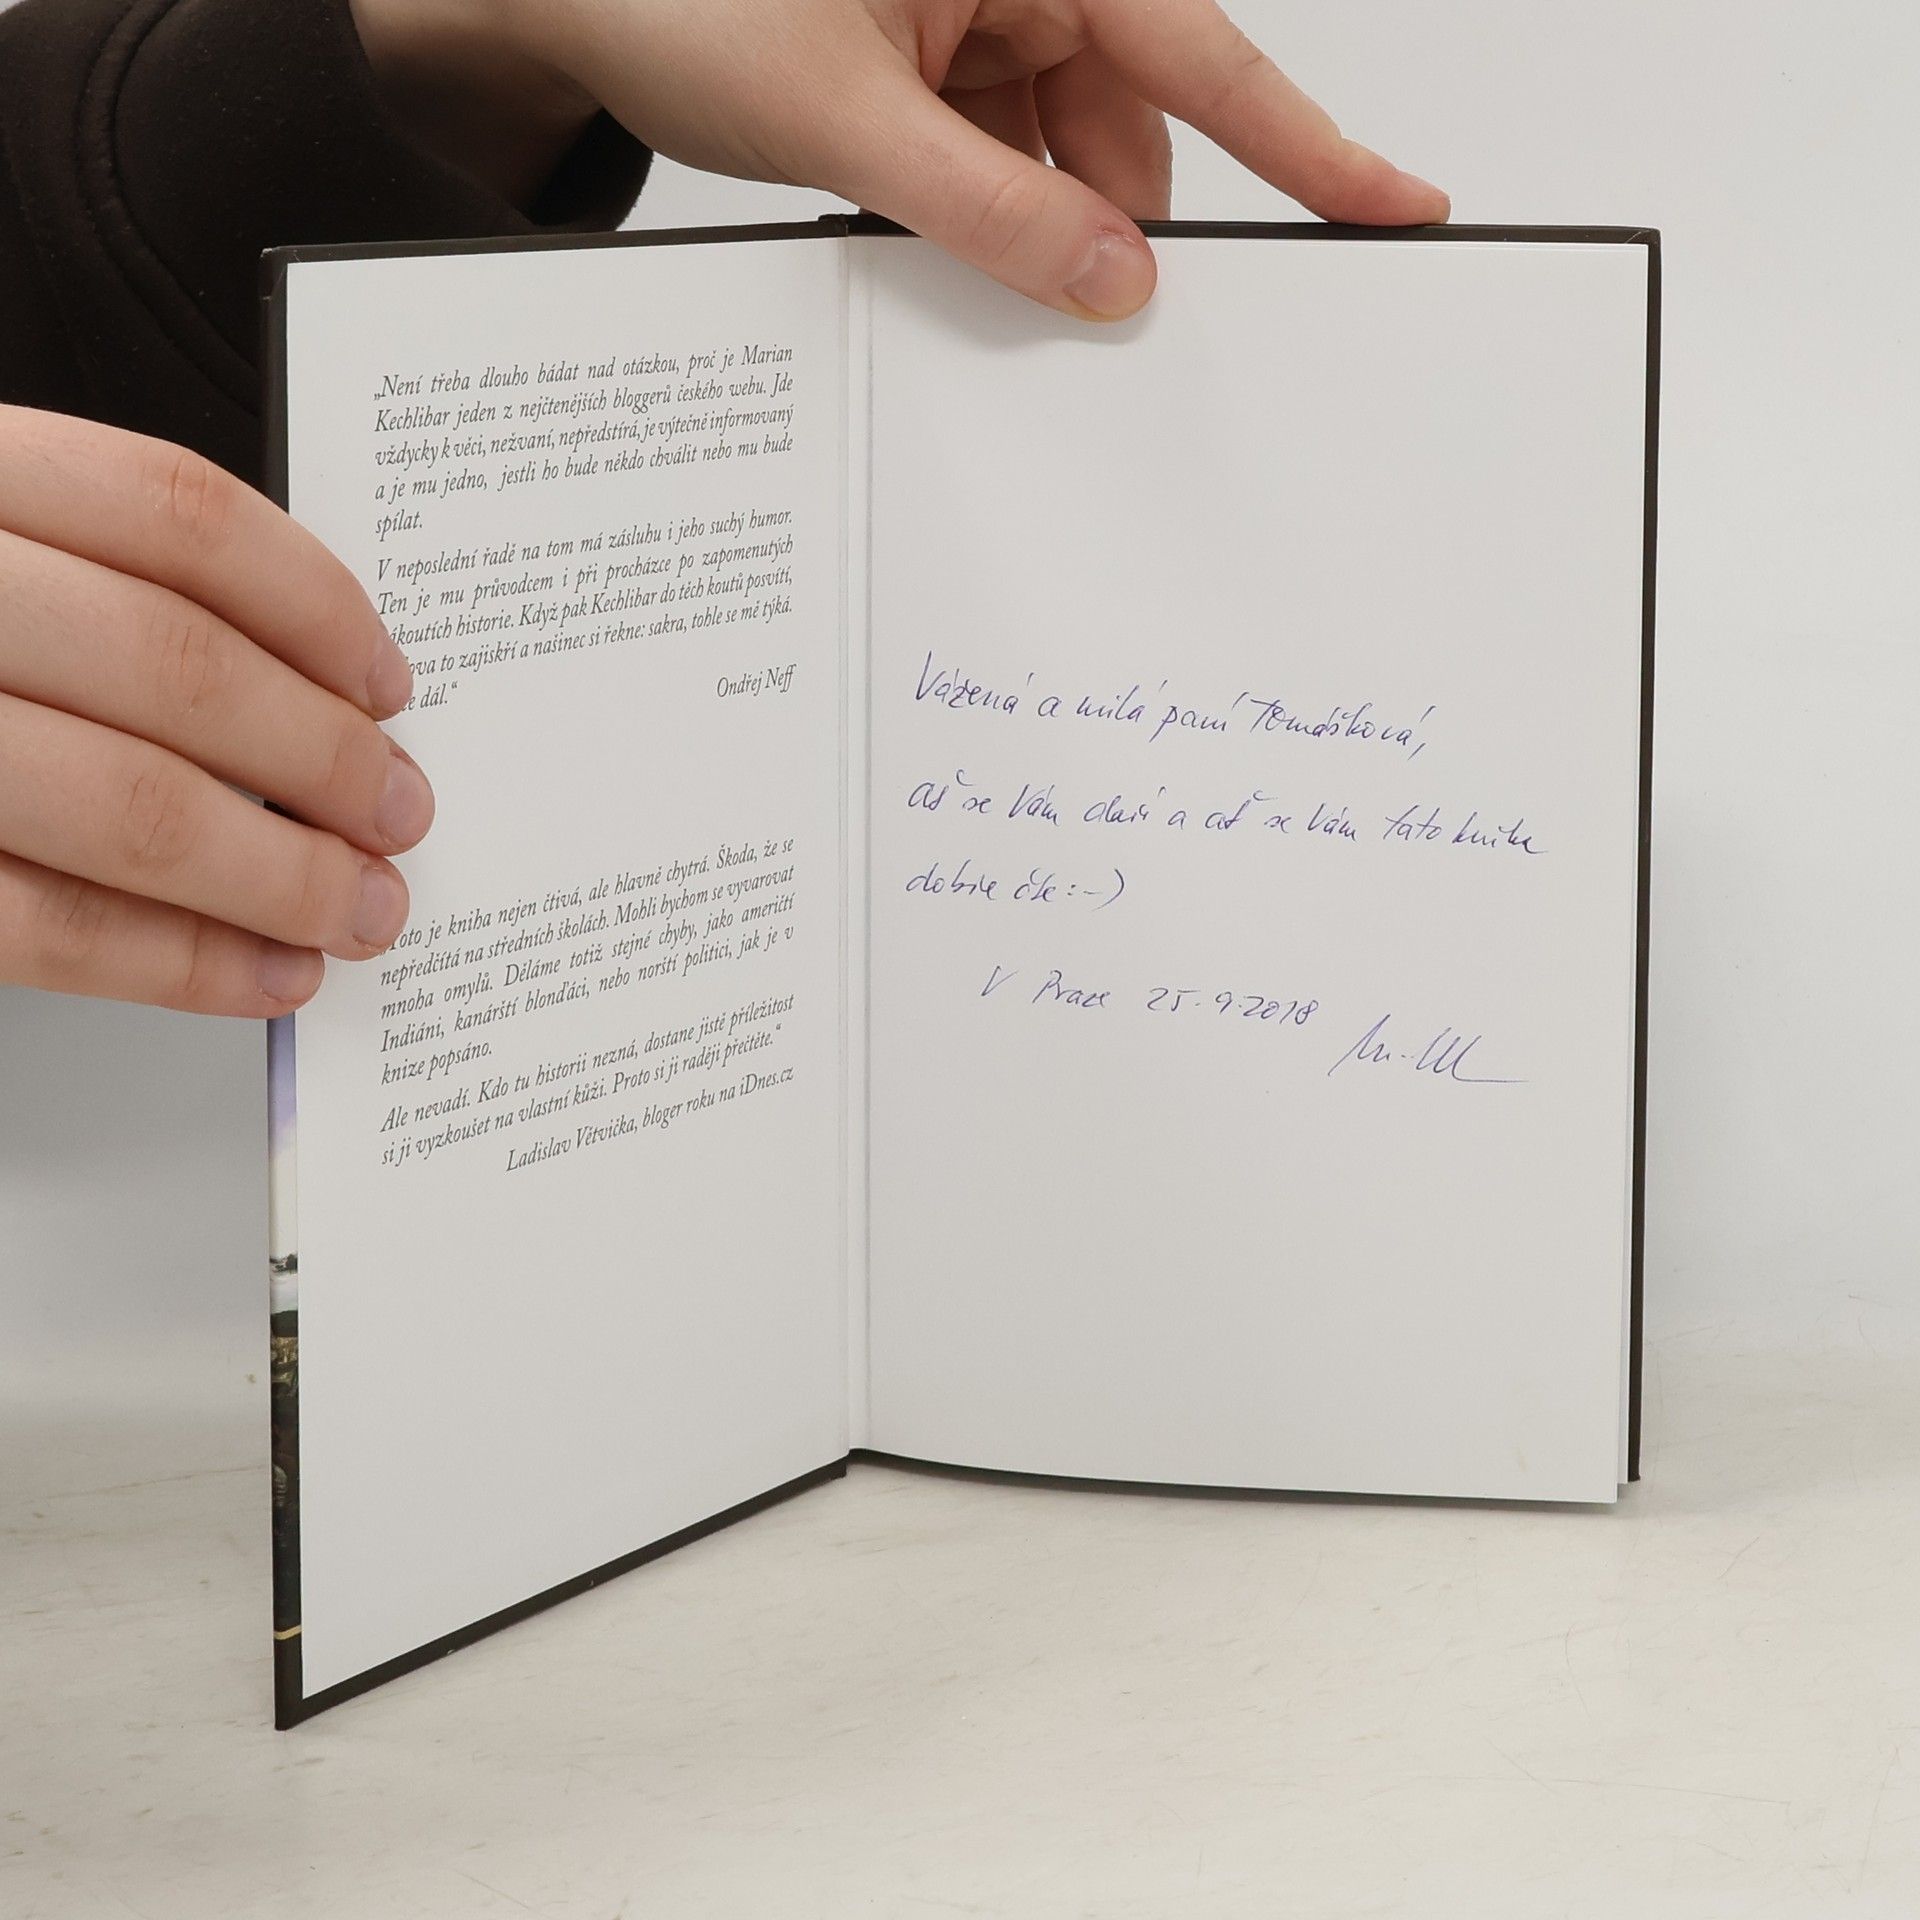 „Není třeba dlouho bádat nad otázkou, proč je Marian
Kechlibar jeden z nejčtenějších bloggerů českého webu. Jde
vždycky k věci, nežvaní, nepředstírá, je výtečně informovaný
a je mu jedno, jestli ho bude někdo chválit nebo mu bude
spílat.
V neposlední řadě na tom má zásluhu i jeho suchý humor.
Ten je mu průvodcem i při procházce po zapomenutých
ákoutích historie. Když pak Kechlibar do těch koutů posvítí,
ova to zajiskří a našinec si řekne: sakra, tohle se mě týká.
e dál.“
Ondřej Neff
„Toto je kniha nejen čtivá, ale hlavně chytrá. Škoda, že se
nepředčítá na středních školách. Mohli bychom se vyvarovat
mnoha omylů. Děláme totiž stejné chyby, jako američtí
Indiáni, kanárští blonďáci, nebo norští politici, jak je v
knize popsáno.
Ale nevadí. Kdo tu historii nezná, dostane jistě příležitost
si ji vyzkoušet na vlastní kůži. Proto si ji raději přečtěte.“
Ladislav Větvička, bloger roku na iDnes.cz
Vážená a milá paní Tomášková,
ať se Vám daří a ať se Vám tato kniha
dobře čte :-)
V Praze 25.9.2018